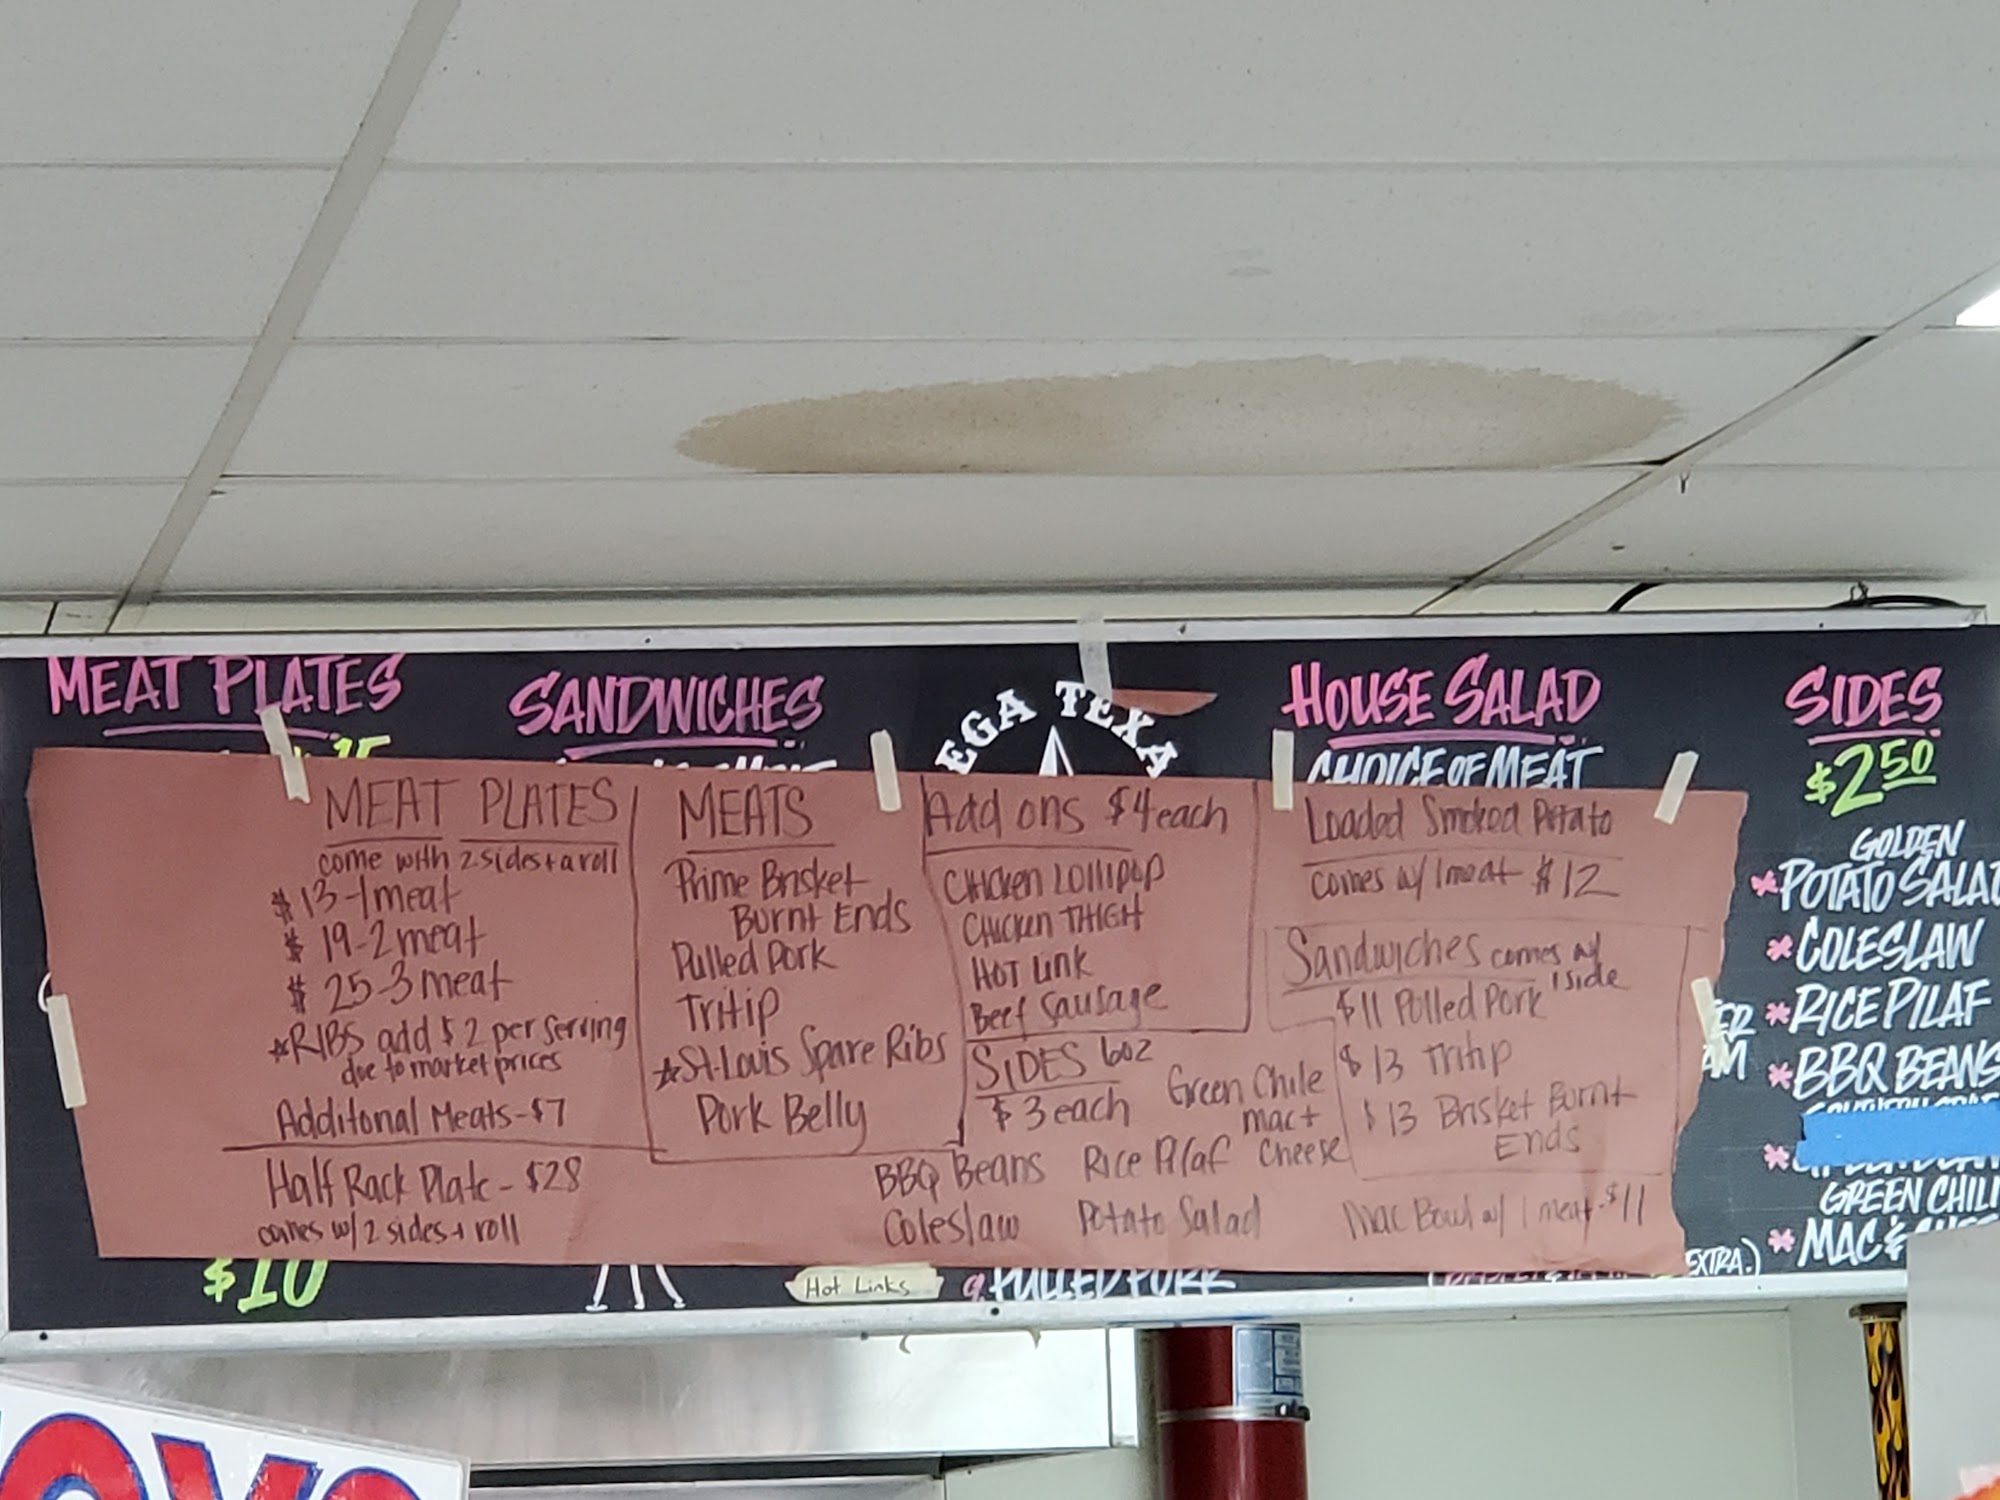 MEAT PLATES
SANDWICHES
EGA TEXA
HOUSE SALAD
CHOICE OF MEAT
SIDES
$2.50
GOLDEN
* POTATO SALAD
* COLESLAW
* RICE PILAF
* BBQ BEANS
GREEN CHILI
* MAC &
MEAT PLATES
come with 2 sides + a roll
$13-1 meat
$19-2 meat
$25-3 meat
☆RIBS add $2 per serving
due to market prices
Additional Meats-$7
Half Rack Plate - $28
comes w/ 2 sides + roll
MEATS
Prime Brisket
Burnt Ends
Pulled Pork
Tritip
☆St. Louis Spare Ribs
Pork Belly
Add ons $4 each
CHICKEN LOLLIPOP
CHICKEN THIGH
HOT LINK
Beef Sausage
SIDES 6oz
$3 each
Green Chile
mac +
Cheese
BBQ Beans Rice Pilaf
Coleslaw Potato Salad
Loaded Smoked Potato
comes w/ 1 meat $12
Sandwiches comes w/
1 side
$11 Pulled Pork
$13 Tritip
$13 Brisket Burnt
Ends
Mac Bowl w/ 1 meat-$11
$10
Hot Links
9. PULLED PORK
EXTRA.)